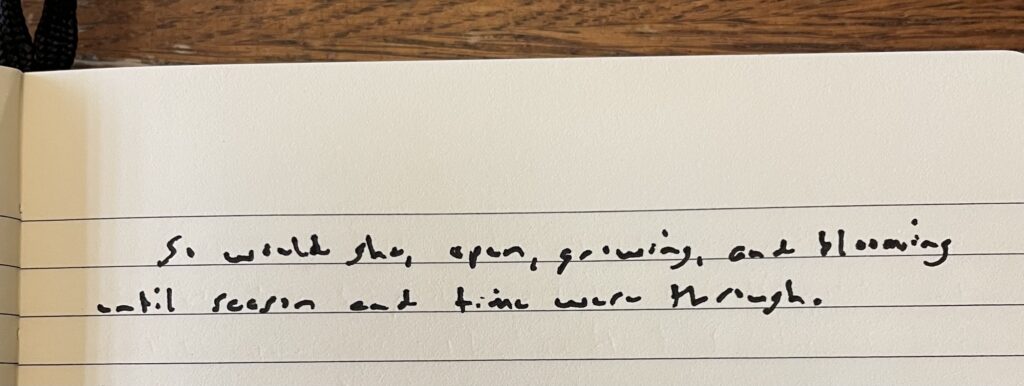 So would she, open, growing, and blooming
until season and time were through.